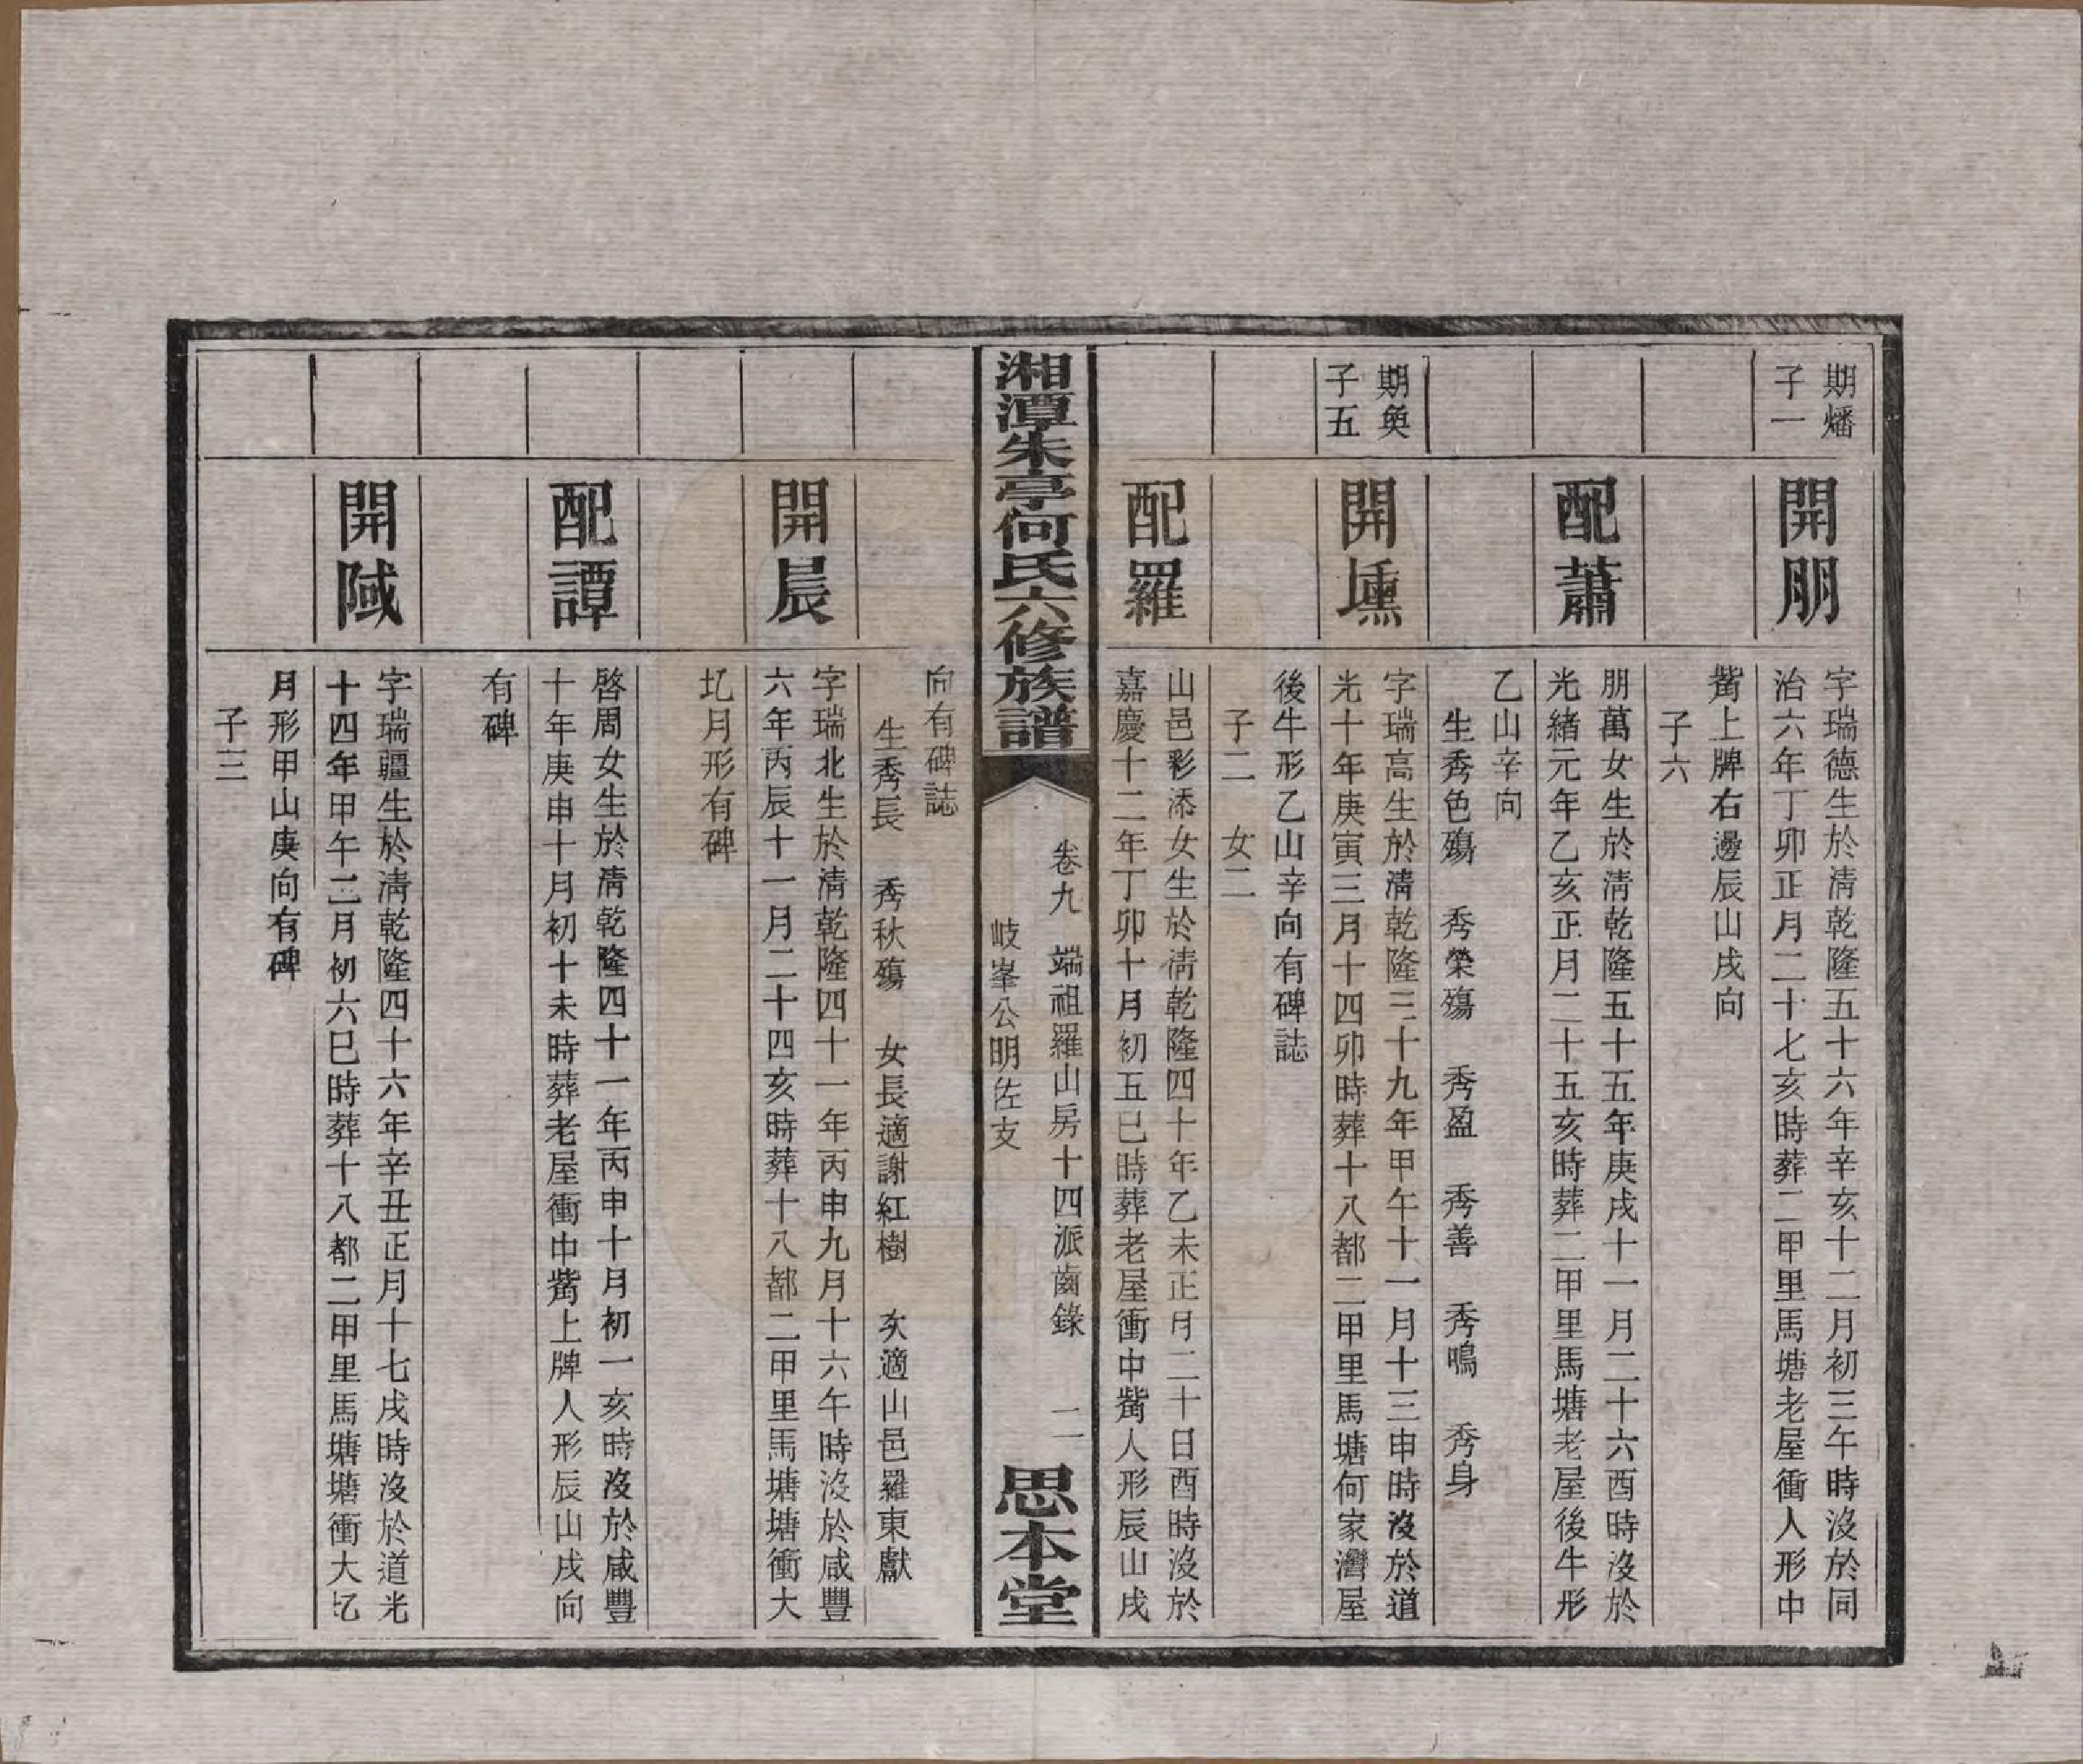 期燔
子一
開朋
字瑞德生於淸乾隆五十六年辛亥十二月初三午時沒於同
治六年丁卯正月二十七亥時葬二甲里馬塘老屋衝人形中
觜上牌右邊辰山戌向
子六
配蕭
朋萬女生於淸乾隆五十五年庚戌十一月二十六酉時沒於
光緖元年乙亥正月二十五亥時葬二甲里馬塘老屋後牛形
乙山辛向
生秀色殤 秀榮殤 秀盈 秀善 秀鳴 秀身
期奐
子五
開壎
字瑞高生於淸乾隆三十九年甲午十一月十三申時沒於道
光十年庚寅三月十四卯時葬十八都二甲里馬塘何家灣屋
後牛形乙山辛向有碑誌
子二 女二
配羅
山邑彩添女生於淸乾隆四十年乙未正月二十日酉時沒於
嘉慶十二年丁卯十月初五巳時葬老屋衝中觜人形辰山戌
湘潭朱亭何氏六修族譜
卷九 端祖羅山房十四派齒錄 二
岐峯公明佐支
思本堂
向有碑誌
生秀長 秀秋殤 女長適謝紅樹 次適山邑羅東獻
開晨
字瑞北生於淸乾隆四十一年丙申九月十六午時沒於咸豐
六年丙辰十一月二十四亥時葬十八都二甲里馬塘塘衝大
圪月形有碑
配譚
啓周女生於淸乾隆四十一年丙申十月初一亥時沒於咸豐
十年庚申十月初十未時葬老屋衝中觜上牌人形辰山戌向
有碑
開陚
字瑞疆生於淸乾隆四十六年辛丑正月十七戌時沒於道光
十四年甲午二月初六巳時葬十八都二甲里馬塘塘衝大圪
月形甲山庚向有碑
子三